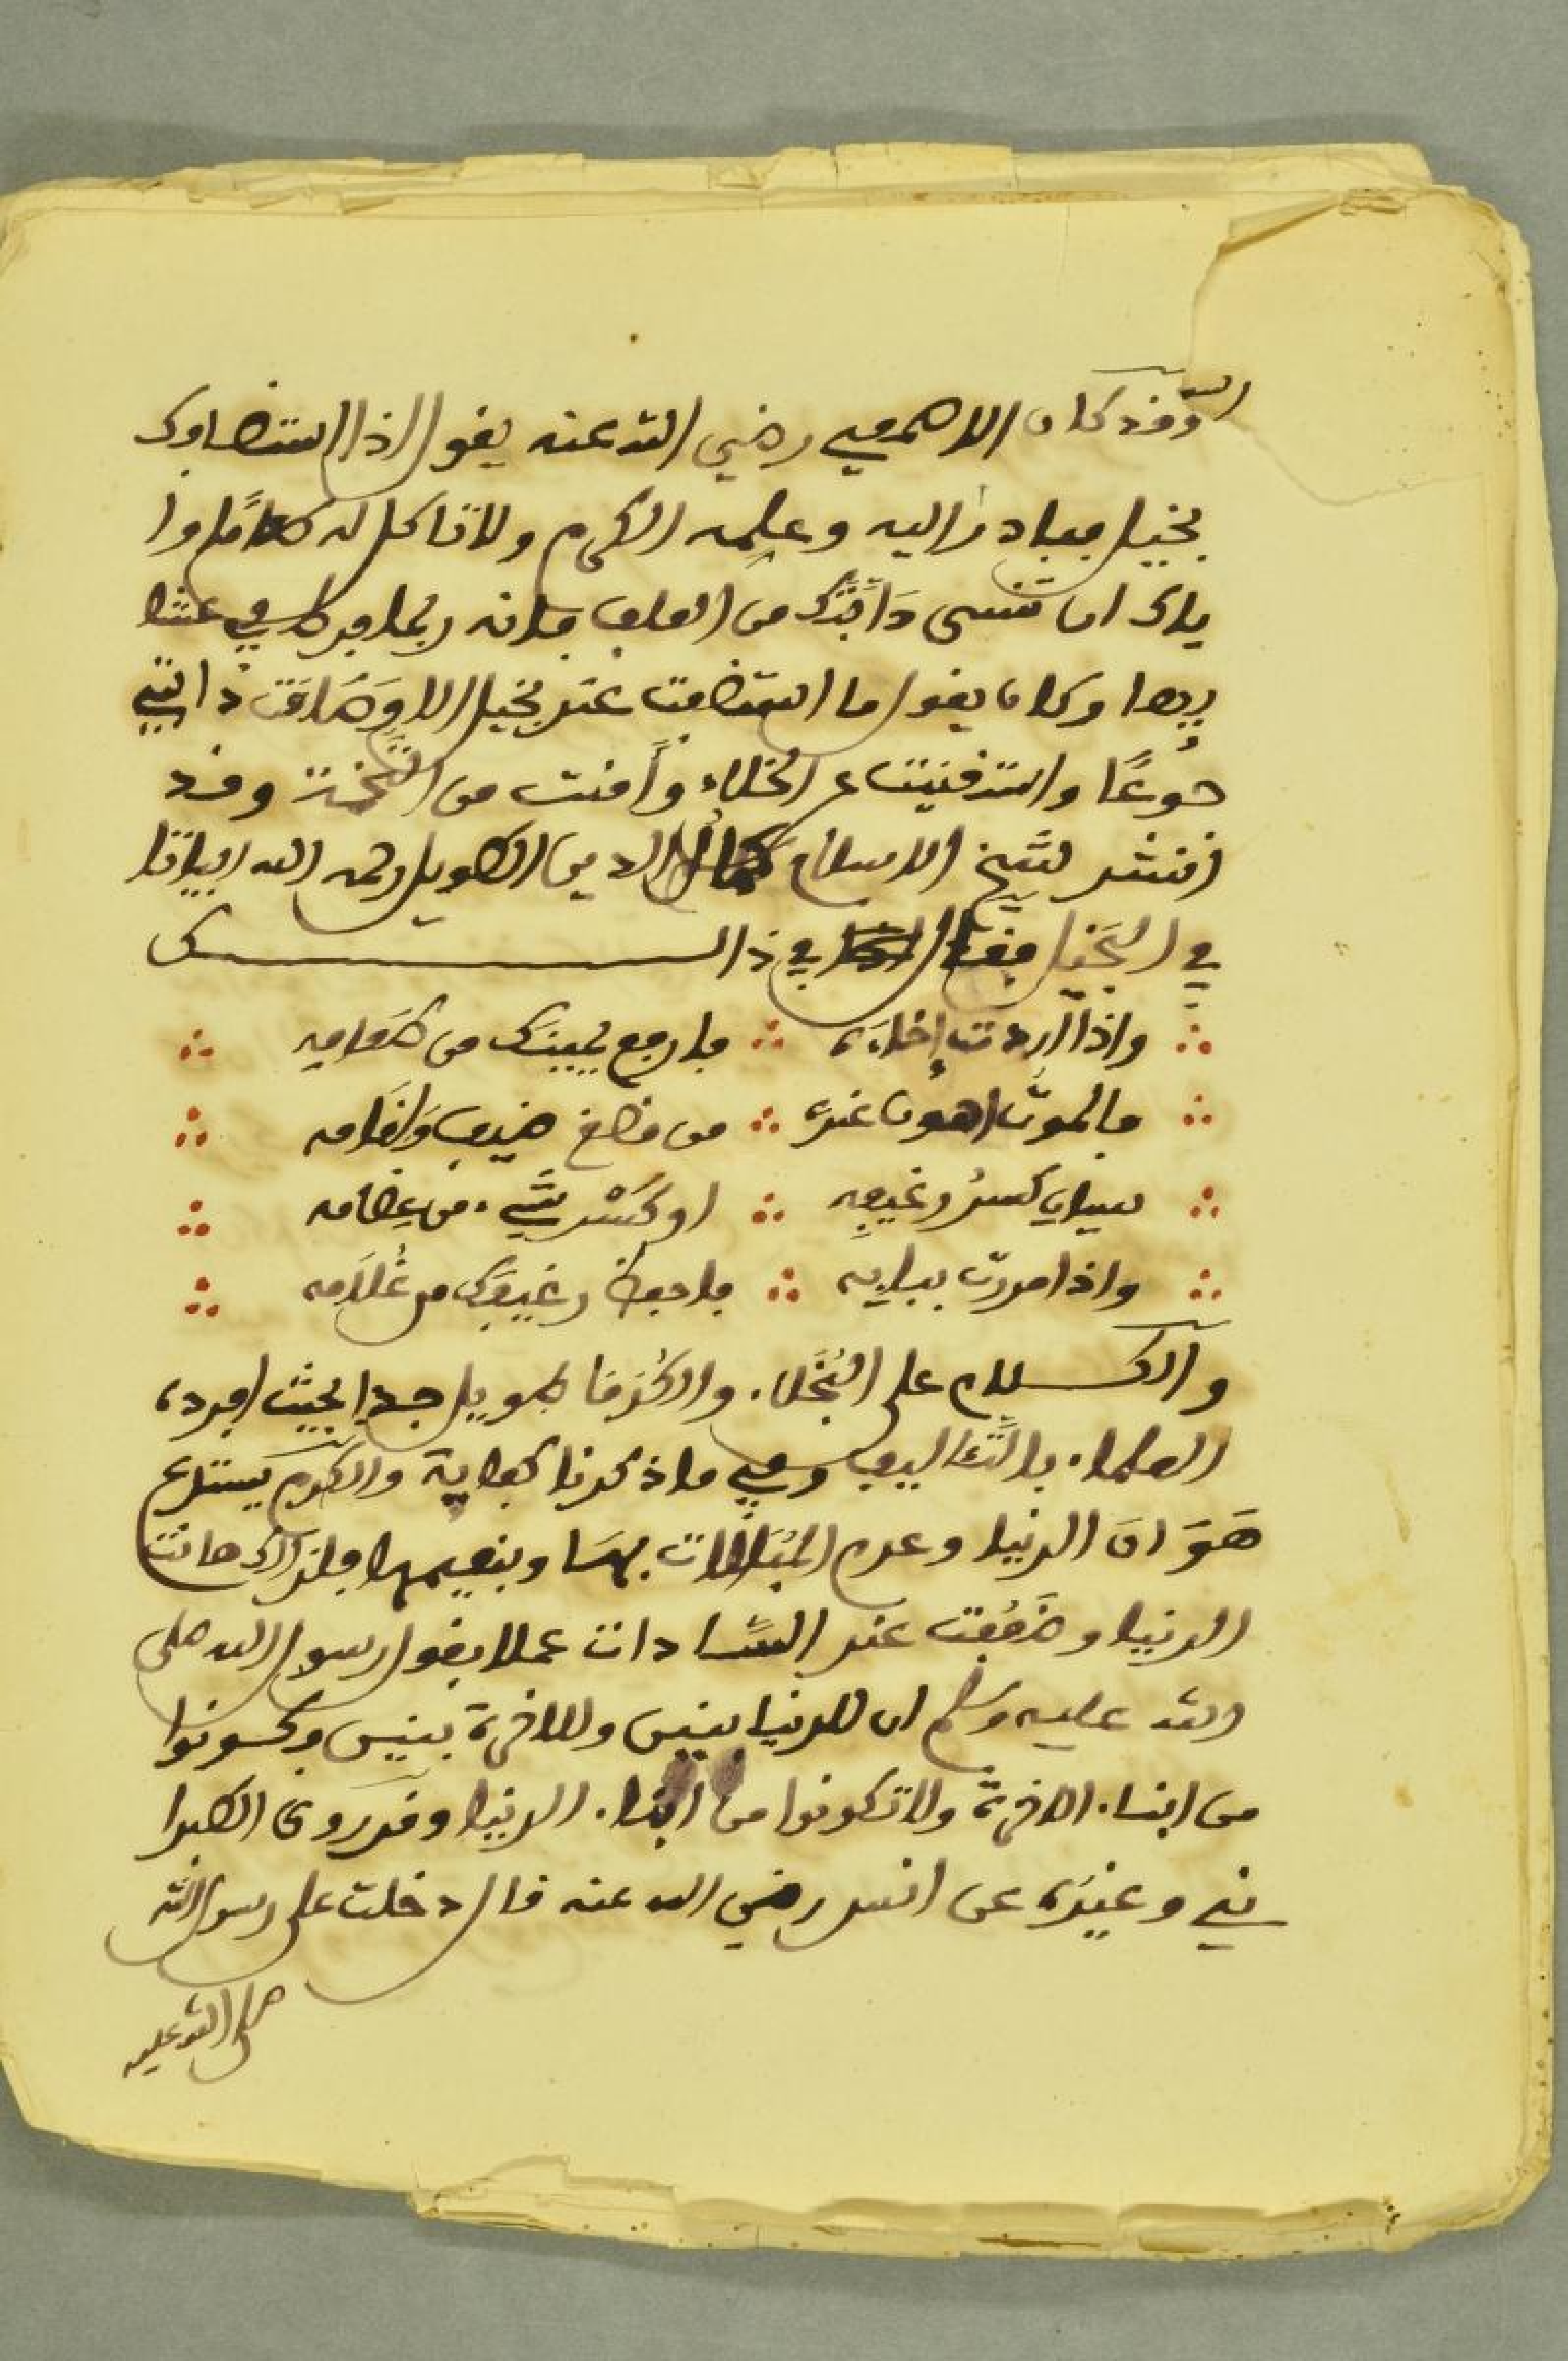 الله وقد كان الاصمعي رضي الله عنه يقول اذا استضافك
بخيل فبادر اليه وعلمه الكرم ولا تاكل له طعاما وا
ياك ان تنسى دَابَّتَك من العلف فانه ربما فرط في عشا
ئها وكان يقول ما استضفت عند بخيل الا وَضَافَت دابتي
جُوعًا واستغنيت عن الخلاء وَأَمنت من التُّخمة وقد
انشد شيخ الاسلام كمال الدين الطويل رحمه الله ابياتا
في البَخيل فقال في ذالك
واذا اردت إخاءَه ∴ فارفع يمينك من طَعامه
فالموتُ اهون عنده ∴ من مضغ ضيف وَالتقامه
سيان كسرُ رغيفِه ∴ او كَسْر شيء من عِظامه
واذا مررت ببابه ∴ فاحفظ رغيفَك من غُلَامه
والكلام على البُخَلاء والكُرَما طويل جدا بحيث افرده
العلماء بالتَّئاليف وفي ما ذكرنا كفاية والكرم يَستدع
هَوَانَ الدنيا وعدم المُبَالات بهَا وبنعيمها فلذالك هانت
الدنيا وضَعُفت عند السَّادات عملا بقول رسول الله صلى
الله عليه وسلم ان للدنيا بنين وللاخرة بنين وكونوا
من ابناء الاخرة ولا تكونوا من ابناء الدنيا وقد روى الطبرا
ني وغيرَه عن انس رضي الله عنه قال دخلت على رسول الله
صلى الله عليه